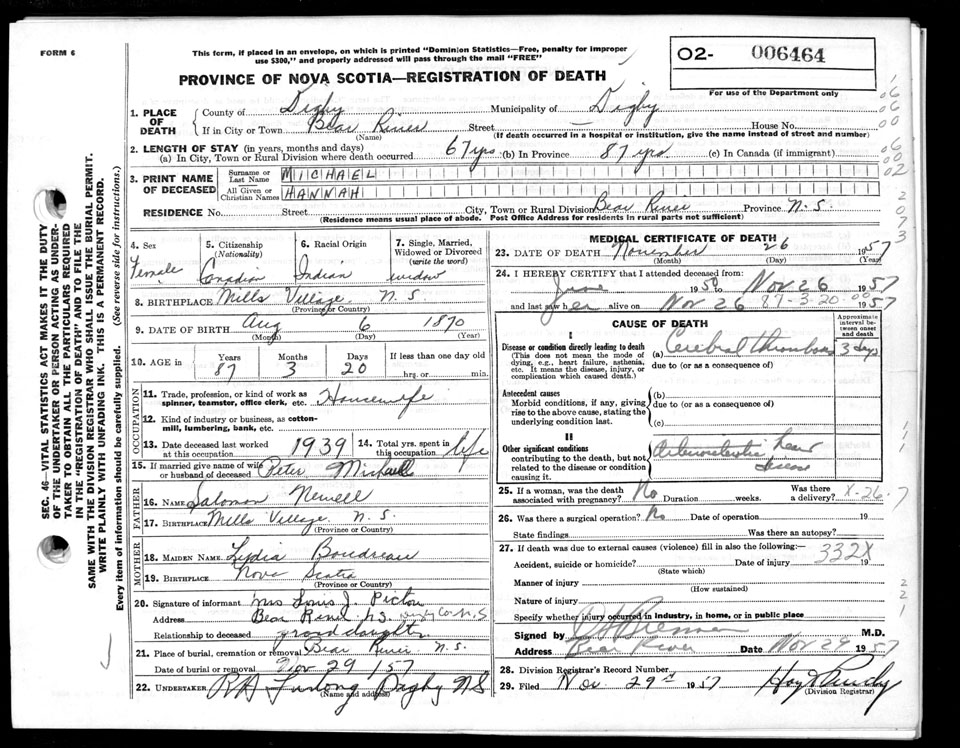 FORM 6
This form, if placed in an envelope, on which is printed "Dominion Statistics—Free, penalty for improper
use $300," and properly addressed will pass through the mail "FREE"
O2- 006464
For use of the Department only
PROVINCE OF NOVA SCOTIA—REGISTRATION OF DEATH
1. PLACE OF DEATH
County of Digby Municipality of Digby
If in City or Town Bear River Street — House No.
(Name) (If death occurred in a hospital or institution, give the name instead of street and number)
2. LENGTH OF STAY (in years, months and days)
(a) In City, Town or Rural Division where death occurred 67 yrs (b) In Province 87 yrs (c) In Canada (if immigrant)
3. PRINT NAME OF DECEASED
Surname or Last Name MICHAEL
All Given or Christian Names HANNAH
RESIDENCE No. Street City, Town or Rural Division Bear River Province N.S.
(Residence means usual place of abode. Post Office Address for Residents in rural parts not sufficient)
4. Sex Female
5. Citizenship (Nationality) Canadian
6. Racial Origin Indian
7. Single, Married, Widowed or Divorced (write the word) widow
8. BIRTHPLACE Mills Village N.S.
(Province or Country)
9. DATE OF BIRTH Aug 6 1870
(Month) (Day) (Year)
10. AGE in Years Months Days If less than one day old
87 3 20 hrs. or min.
OCCUPATION
11. Trade, profession, or kind of work as spinner, teamster, office clerk, etc. Housewife
12. Kind of industry or business, as cotton-mill, lumbering, bank, etc.
13. Date deceased last worked at this occupation 1939
14. Total yrs. spent in this occupation life
15. If married give name of wife or husband of deceased Peter Michael
FATHER
16. NAME Salomon Newell
17. BIRTHPLACE Mills Village N.S.
(Province or Country)
MOTHER
18. MAIDEN NAME Lydia Boudreau
19. BIRTHPLACE Nova Scotia
(Province or Country)
20. Signature of informant Mrs Louis J. Pictou
Address Bear River N.S. Digby Co. N.S
Relationship to deceased granddaughter
21. Place of burial, cremation or removal Bear River N.S.
Date of burial or removal Nov 29 157
22. UNDERTAKER R A Furlong Digby NS
(Name and address)
MEDICAL CERTIFICATE OF DEATH
23. DATE OF DEATH November 26 1957
(Month) (Day) (Year)
24. I HEREBY CERTIFY that I attended deceased from:
June 1950 to Nov 26 1957
and last saw her alive on Nov 26 87-3-20-00 1957
CAUSE OF DEATH
Approximate interval between onset and death
I
Disease or condition directly leading to death
(This does not mean the mode of dying, e.g., heart failure, asthenia, etc. It means the disease, injury, or complication which caused death.)
(a) Cerebral thrombosis 3 days
due to (or as a consequence of)
Antecedent causes
Morbid conditions, if any, giving rise to the above cause, stating the underlying condition last.
(b)
due to (or as a consequence of)
(c)
II
Other significant conditions
contributing to the death, but not related to the disease or condition causing it.
Arteriosclerotic heart
disease
25. If a woman, was the death associated with pregnancy? No Duration weeks. Was there a delivery? X-26-7
26. Was there a surgical operation? No Date of operation 19
State findings Was there an autopsy?
27. If death was due to external causes (violence) fill in also the following:—
Accident, suicide or homicide? Date of injury 332X 19
(State which)
Manner of injury
(How sustained)
Nature of injury
Specify whether injury occurred in industry, in home, or in public place
Signed by M.D.
Address Bear River Date Nov 29 1957
28. Division Registrar's Record Number
29. Filed Nov. 29th 1957
(Division Registrar)
SEC. 46—VITAL STATISTICS ACT MAKES IT THE DUTY
OF THE UNDERTAKER OR PERSON ACTING AS UNDERTAKER TO OBTAIN ALL THE PARTICULARS REQUIRED
IN THE "REGISTRATION OF DEATH" AND TO FILE THE
SAME WITH THE DIVISION REGISTRAR WHO SHALL ISSUE THE BURIAL PERMIT.
WRITE PLAINLY WITH UNFADING INK. THIS IS A PERMANENT RECORD.
Every item of information should be carefully supplied. (See reverse side for instructions.)